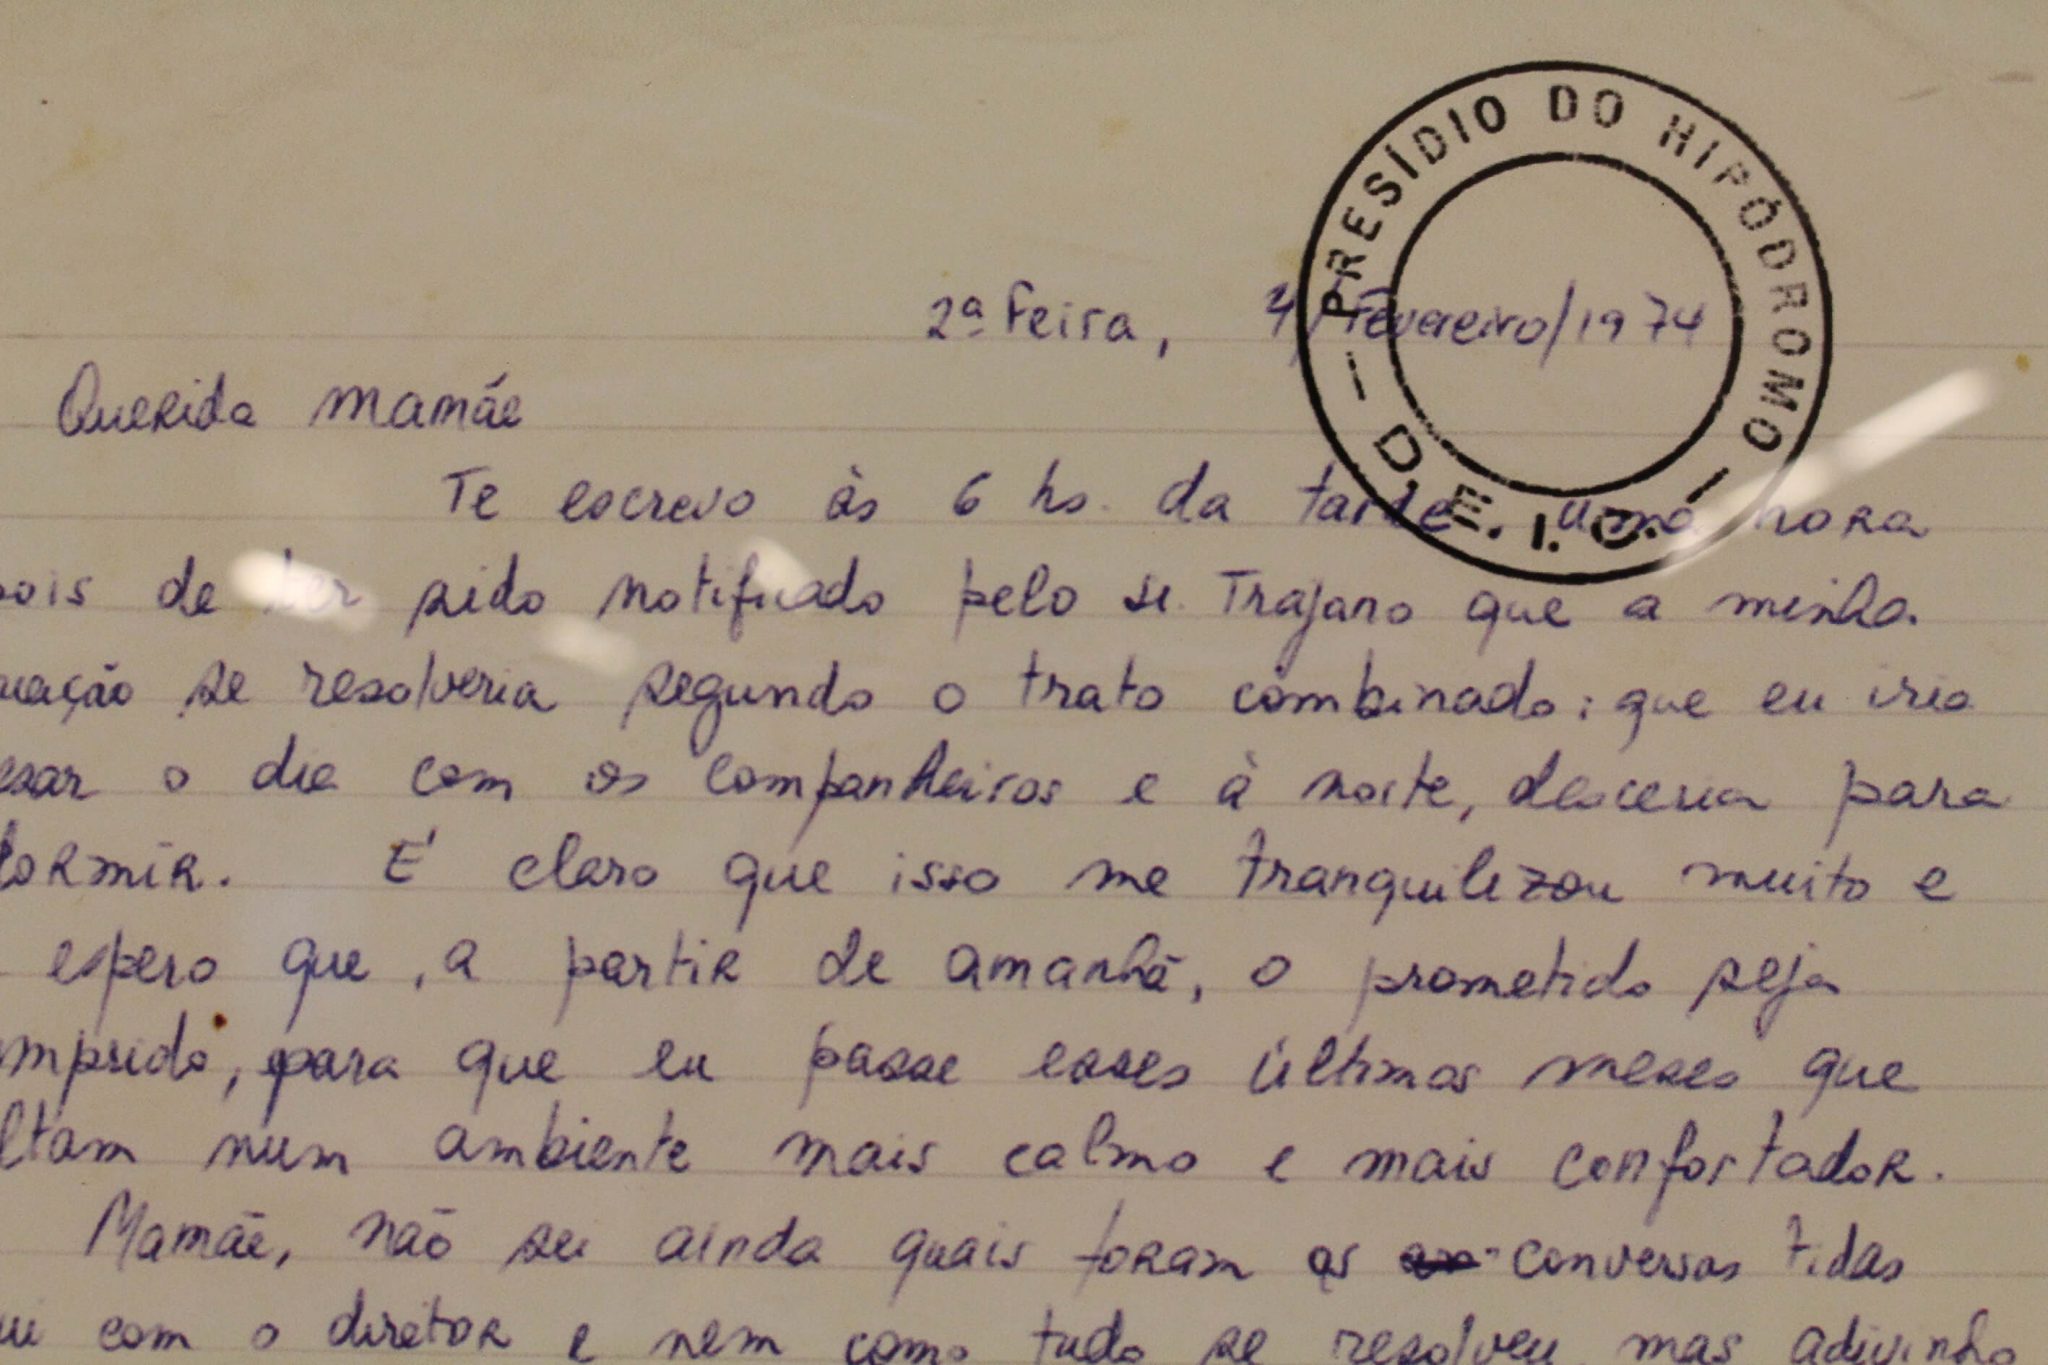 PRESÍDIO DO HIPÓDROMO - D.E.I.C. -
2ª Feira, 4/Fevereiro/1974
Querida Mamãe
Te escrevo às 6 hs. da tarde, uma hora
pois de ter sido notificado pelo sr. Trajano que a minha
uação se resolveria segundo o trato combinado: que eu iria
ssar o dia com os companheiros e à noite, desceria para
dormir. É claro que isso me tranquilizou muito e
espero que, a partir de amanhã, o prometido seja
mprido, para que eu passe esses últimos meses que
ltam num ambiente mais calmo e mais confortador.
Mamãe, não sei ainda quais foram as conversas tidas
ui com o diretor e nem como tudo se resolveu mas adivinho